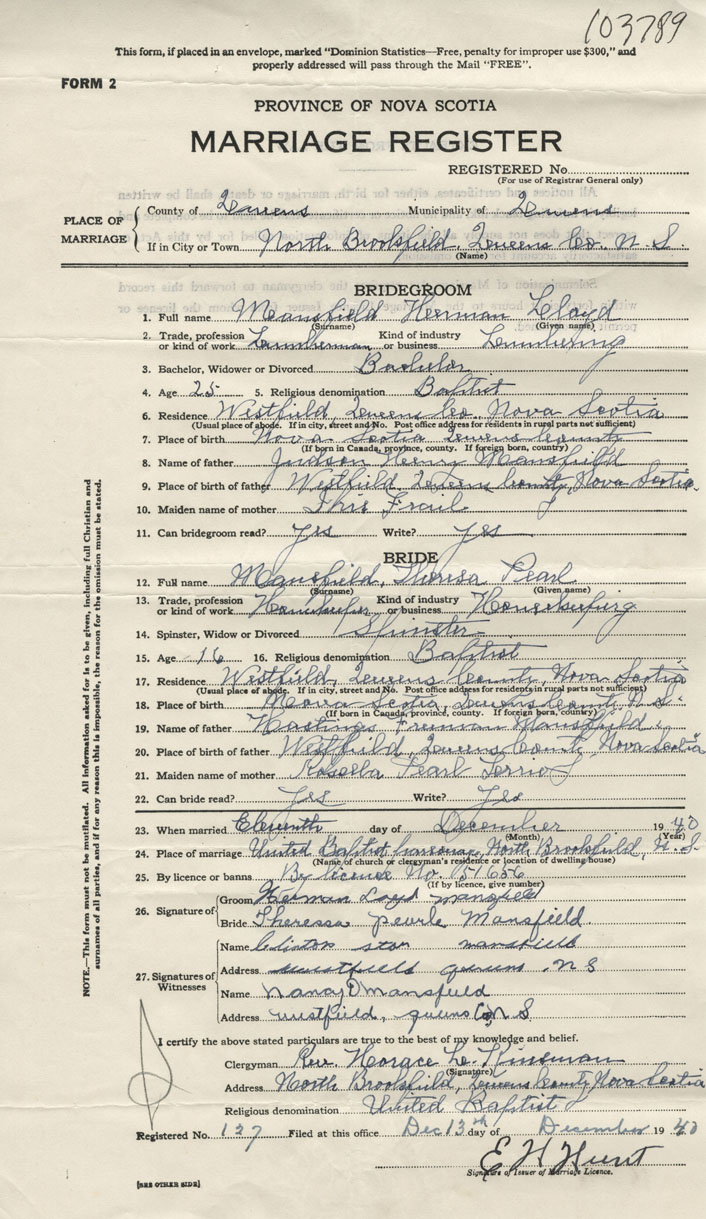 103789
This form, if placed in an envelope, marked "Dominion Statistics—Free, penalty for improper use $300," and
properly addressed will pass through the Mail "FREE".
FORM 2
PROVINCE OF NOVA SCOTIA
MARRIAGE REGISTER
REGISTERED No.
(For use of Registrar General only)
PLACE OF MARRIAGE
County of Queens Municipality of Queens
If in City or Town North Brookfield, Queens Co. N. S.
(Name)
BRIDEGROOM
1. Full name Mansfield Herman Lloyd
(Surname) (Given name)
2. Trade, profession or kind of work Lumberman Kind of industry or business Lumbering
3. Bachelor, Widower or Divorced Bachelor
4. Age 25 5. Religious denomination Baptist
6. Residence Westfield, Queens Co., Nova Scotia
(Usual place of abode. If in city, street and No. Post office address for residents in rural parts not sufficient)
7. Place of birth Nova Scotia Queens County
(If born in Canada, province, county. If foreign born, country)
8. Name of father Judson Henry Mansfield
9. Place of birth of father Westfield, Queens County, Nova Scotia.
10. Maiden name of mother Frail
11. Can bridegroom read? Yes Write? Yes
BRIDE
12. Full name Mansfield, Theresa Pearl
(Surname) (Given name)
13. Trade, profession or kind of work Housekeeper Kind of industry or business Housekeeping
14. Spinster, Widow or Divorced Spinster
15. Age 16 16. Religious denomination Baptist
17. Residence Westfield, Queens County, Nova Scotia
(Usual place of abode. If in city, street and No. Post office address for residents in rural parts not sufficient)
18. Place of birth Nova Scotia, Queens County N. S.
(If born in Canada, province, county. If foreign born, country)
19. Name of father Hastings Freeman Mansfield
20. Place of birth of father Westfield, Queens County, Nova Scotia
21. Maiden name of mother Rosella Pearl
22. Can bride read? Yes Write? Yes
23. When married Eleventh day of December 1940
(Month) (Year)
24. Place of marriage United Baptist Parsonage, North Brookfield, N. S.
(Name of church or clergyman's residence or location of dwelling house)
25. By licence or banns By licence No. 51656
(If by licence, give number)
26. Signature of
Groom Herman Loyd mansfield
Bride Theressa pearle Mansfield
27. Signatures of Witnesses
Name Clinton mansfield
Address westfield queens N S
Name Nancy D mansfield
Address westfield, queens Co N S
I certify the above stated particulars are true to the best of my knowledge and belief.
Clergyman Rev. Horace L. Kinsman
(Signature)
Address North Brookfield, Queens County, Nova Scotia
Religious denomination United Baptist
Registered No. 127 Filed at this office Dec 13th day of December 1940
E H Hunt
Signature of Issuer of Marriage Licence.
[SEE OTHER SIDE]
NOTE.—This form must not be mutilated. All information asked for is to be given, including full Christian and
surnames of all parties, and if for any reason this is impossible, the reason for the omission must be stated.